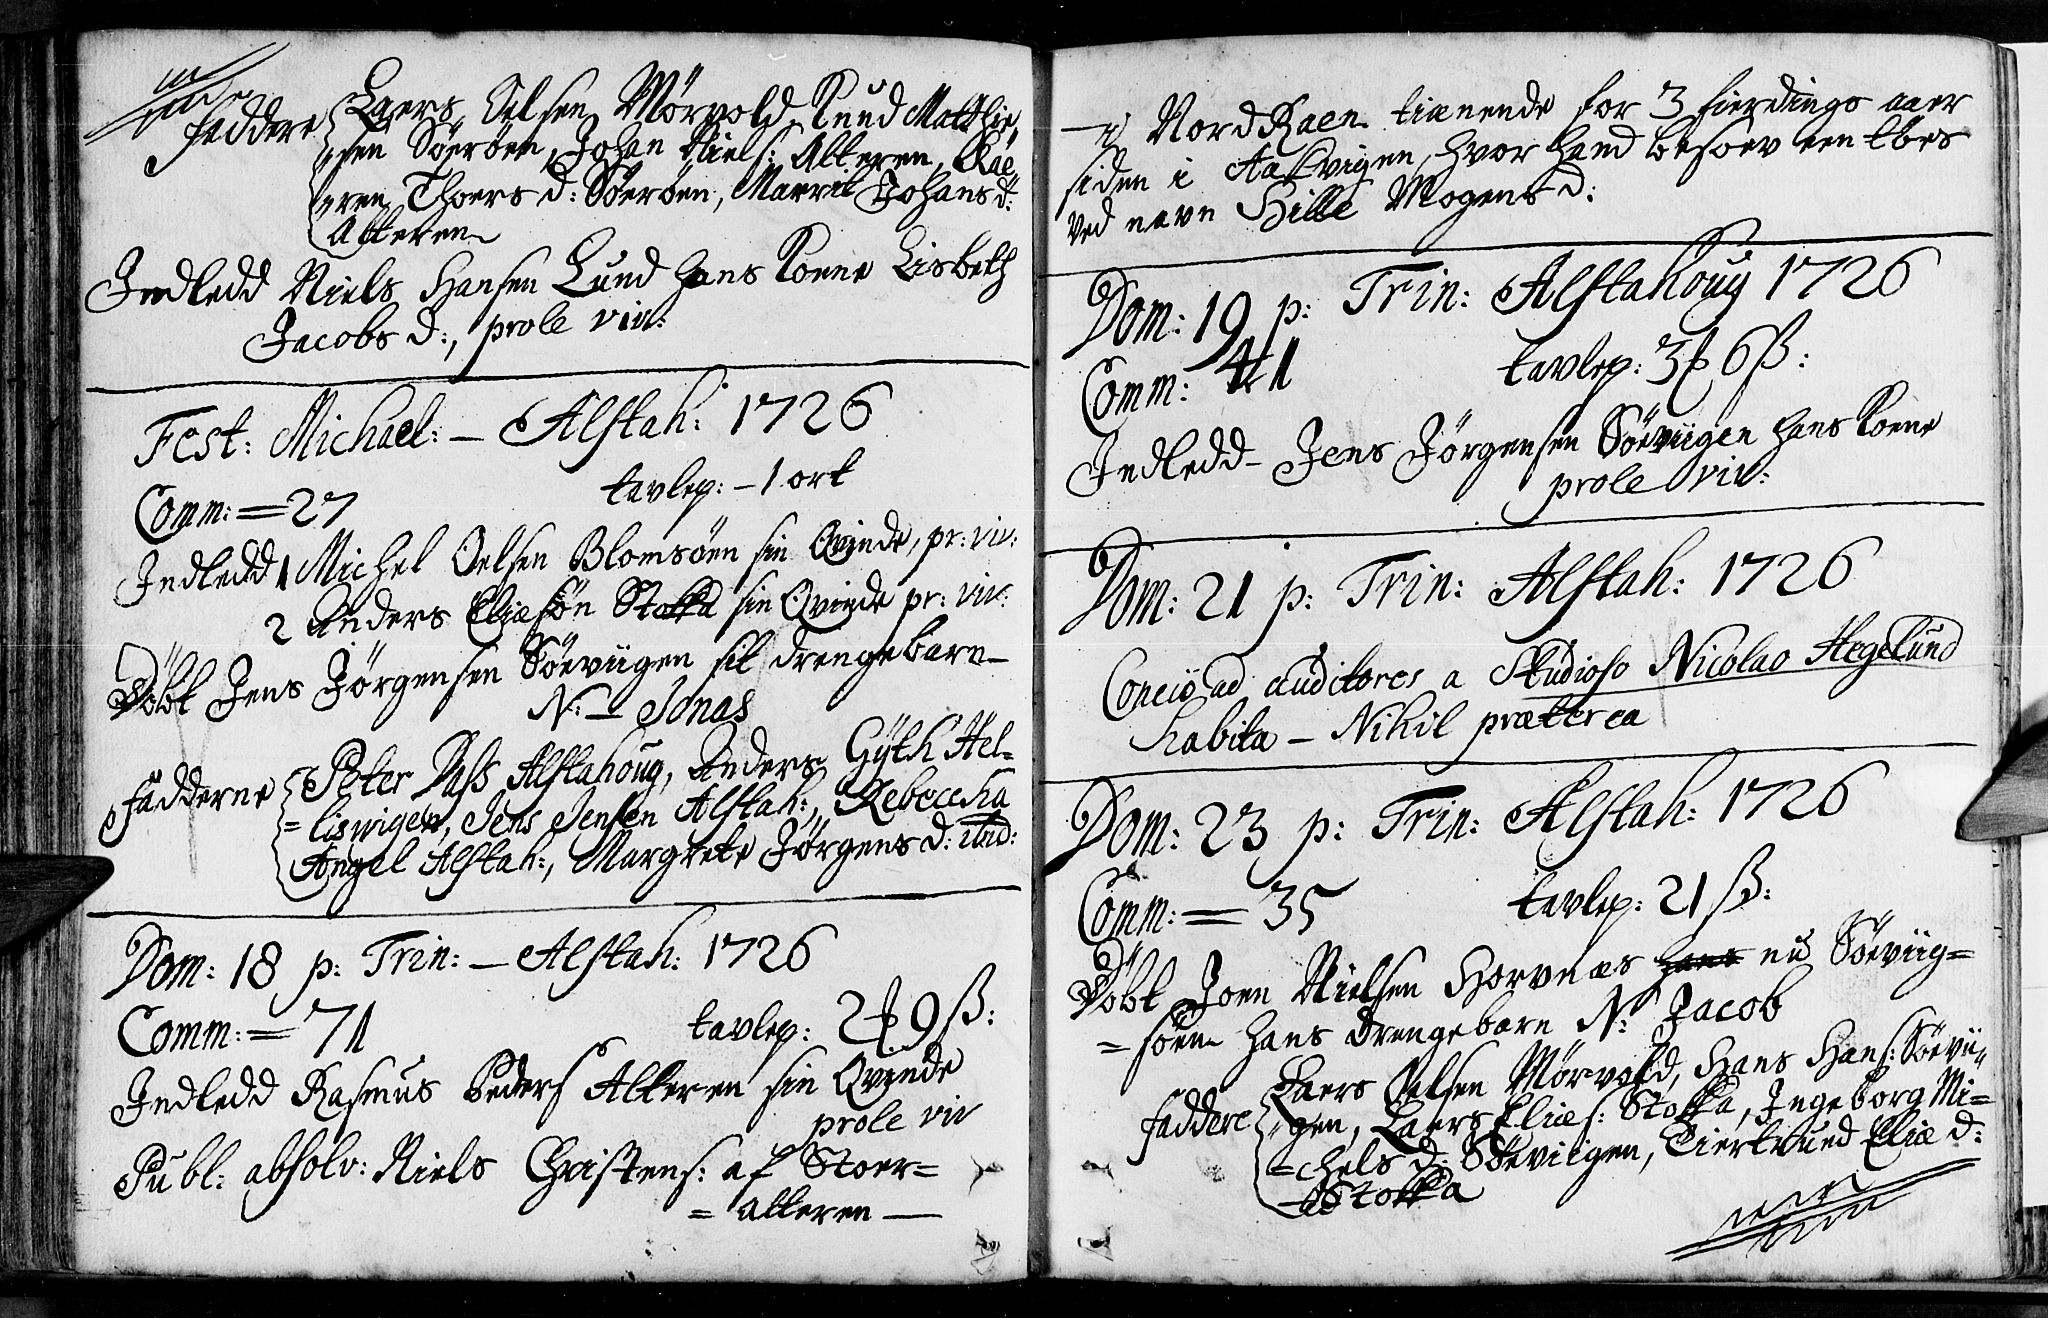 Faddere Laers Oelsen Mørvold, Knud Matthie
"sen Søerøen, Johan Niels: Alteren, Kar
"eren Thoers d: Søerøen, Marrit Johans d:
Alteren
Indledd Niels Hansen Lund hans Kone Lisbeth
Jacobs d:, prole viv:
Fest: Michael: – Alstah: 1726
Comm: = 27 tavlep: – 1 ort
Indledd 1 Michel Oelsen Blomsøen sin Qvinde, pr: viv:
2 Anders Eliæsøn Stokka sin Qvinde pr: viv:
Døbt Jens Jørgensen Søeviigen sit drengebarn –
N: – Jonas
Fadderne Peter Dass Alstahoug, Anders Gyth Hel-
= liswigen, Jens Jensen Alstah:, Rebeccha
Angel Alstah:, Margrete Jørgens d: ibid:
Dom: 18 p: Trin: – Alstah: 1726
Comm: = 71 tavlep: 2 ₰ 9 ß:
Indledd Rasmus Peders Alteren sin Qvinde
prole viv
Publ: absolv: Niels Christens: af Stoer=
= alteren —
– i Nord Raen tienende for 3 fierdings aaer
siden i Aasvigen, hvor hand besoev een tøes
ved navn Sille Mogens d:
Dom: 19 p: Trin: Alstahoug 1726
Comm: 41 tavlep: 3 ₰ 6 ß:
Indledd – Jens Jørgensen Søeviigen hans Kone
prole viv:
Dom: 21 p: Trin: Alstah: 1726
Concio ad auditores a Studioso Nicolao Hegelund
habita – Nihil præterea
Dom: 23 p: Trin: Alstah: 1726
Comm: = 35 tavlep: 21 ß:
Døbt Joen Nielsen Horvnæs hans nu Søeviig=
= søen hans drengebarn N: Jacob
Faddere Laers Oelsen Mørvold, Hans Hans: Søevii
"gen, Laers Eliæs: Stokka, Ingeborg Mi=
= chels d: Søeviigen, Zierkrued Eliæ d:
Stokka